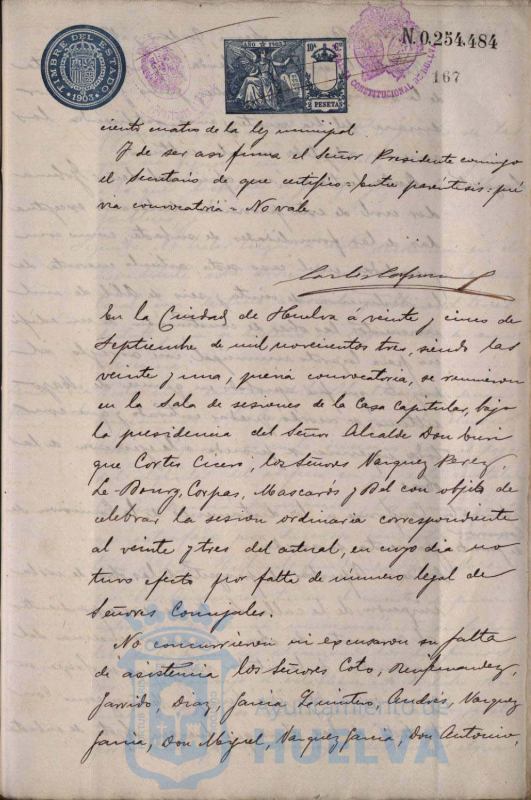 TIMBRE DEL ESTADO
1903
AÑO 1903
10ª Cª
2 PESETAS
CONSTITUCIONAL
N.0.254.484
167
ciento cuatro de la ley municipal
Y de ser asi firma el Señor Presidente conmigo
el Secretario de que certifico = Entre paréntesis: pré
via convocatoria = No vale
En la Ciudad de Huelva á veinte y cinco de
Septiembre de mil novecientos tres, siendo las
veinte y una, previa convocatoria, se reunieron
en la Sala de sesiones de la Casa Capitular, bajo
la presidencia del Señor Alcalde Don Enri
que Cortes Cicero, los Señores Vazquez Perez,
Le Bourg, Corpas, Mascarós y Bel con objeto de
celebrar la sesion ordinaria correspondiente
al veinte y tres del actual, en cuyo dia no
tuvo efecto por falta de número legal de
Señores Concejales.
No concurrieron ni excusaron su falta
de asistencia los Señores Coto,
Garrido, Diaz, Garcia Quintero, Andrés, Vazquez
Garcia, Don Miguel, Vazquez Garcia, Don Antonio,
Ayuntamiento de
HUELVA